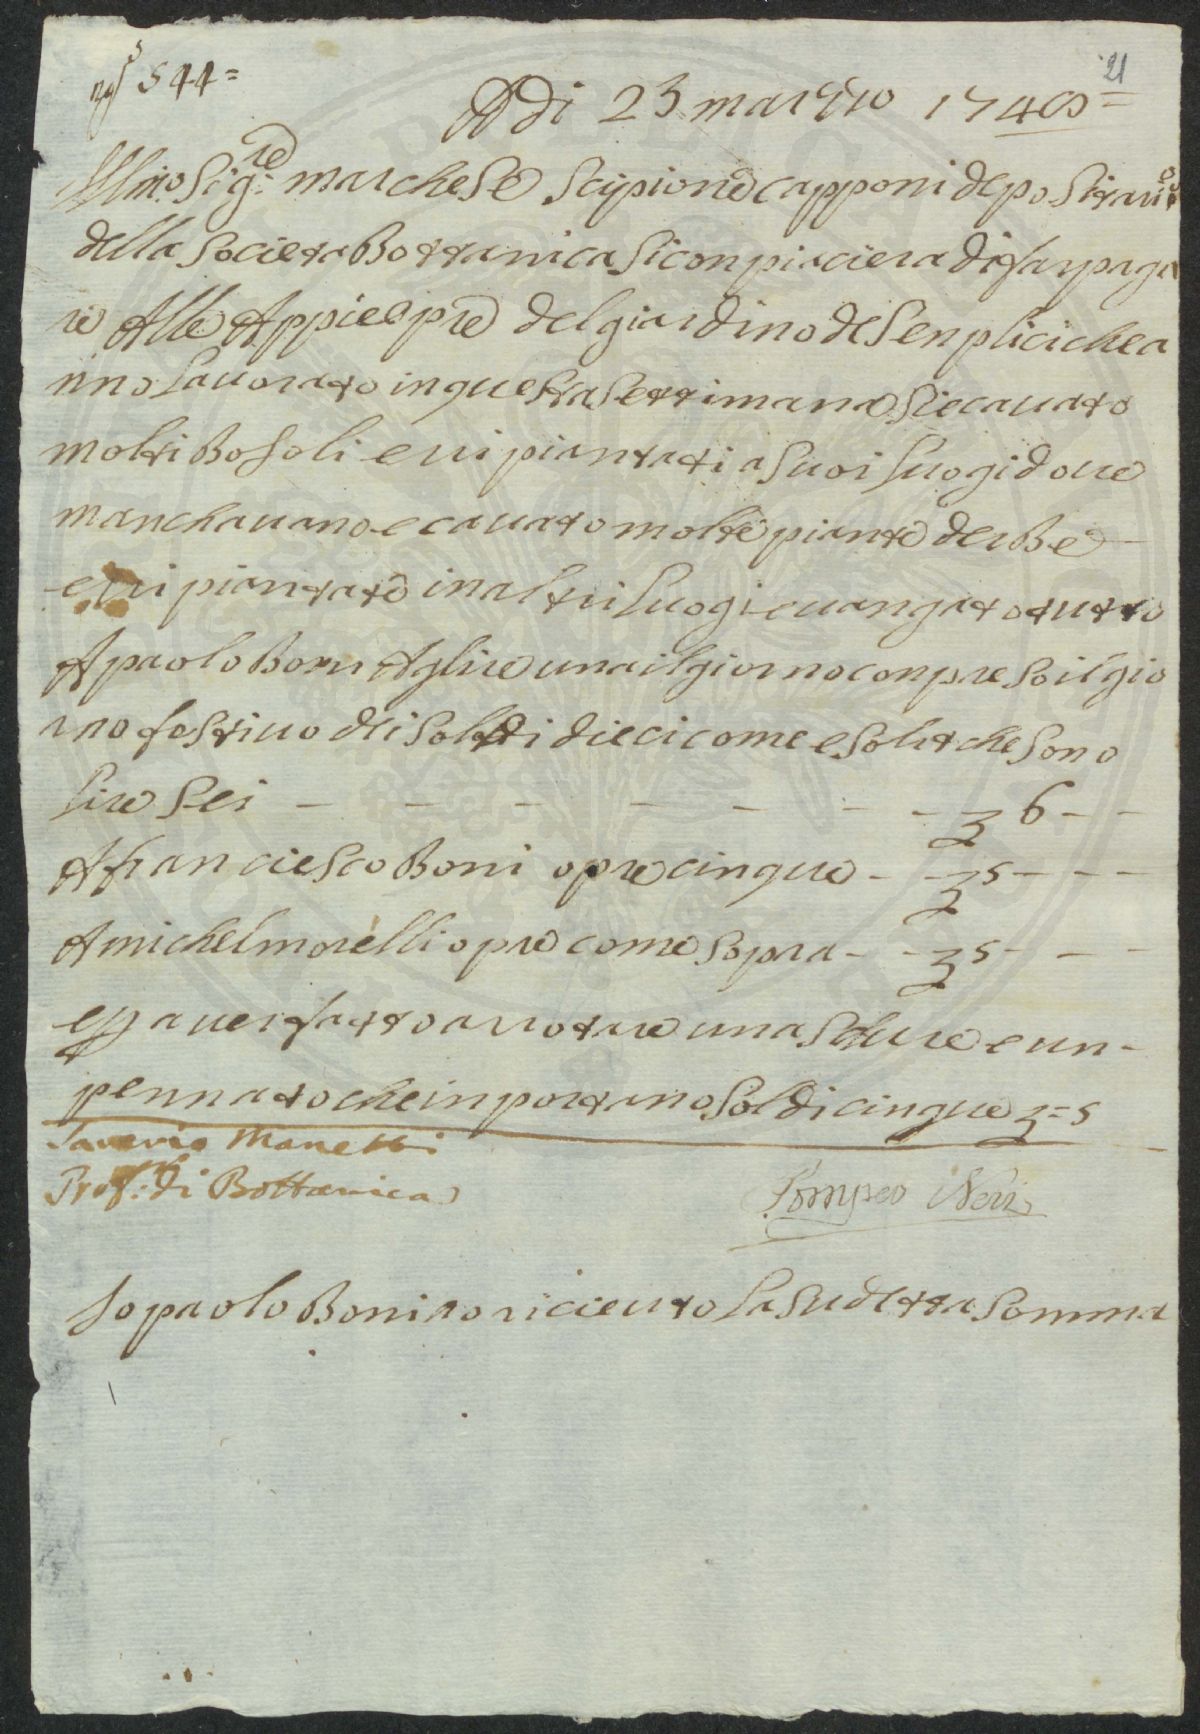 544=
21
A Di 23 marzzo 174
Ill:mo Sig:re marchese Scipione capponi depositario
della Societa Bottanica Si conpiaciera di far paga
re Alle Appie opre del giardino de Senplici che a
nno Lauorato in questa Settimana Si e cauato
molti Bosoli e ui piantati a Suoi Luogi doue
manchauano e cauato molte piante derBe
e ui piantate in altri Luogi e uangato tutto
A paolo Boni A lire una il giorno conpreso il gio
rno festiuo di Soldi dieci come e Solit che Sono
lire Sei - - - - - - - 6 - -
A franciesco Boni opre cinque - - 5 - - -
A michel morelli opre come Sopra - - 5 - - -
e p auer fatto arrotare una Schure e un
pennato che inportano Soldi cinque = 5
Saverio Manetti
Prof:re di Bottanica
Pompeo Neri
Io paolo Boni o riceuto La Sudetta Somma